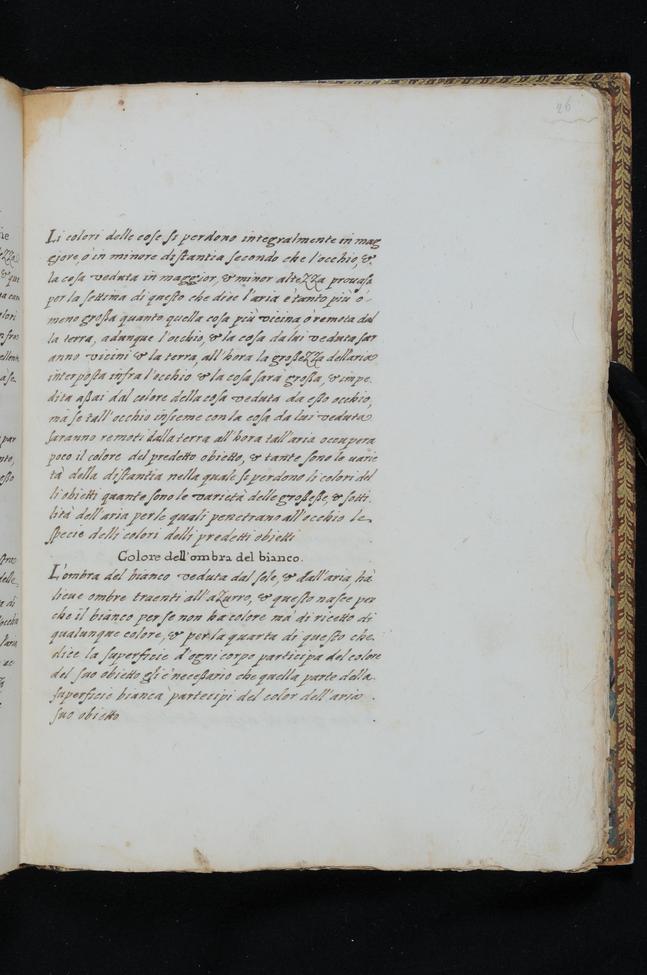 26
Li colori delle cose si perdono integralmente in mag
giore, ò in minore distantia secondo che l'occhio, &
la cosa veduta in maggior, & minor altezza provasi
per la settima di questo che dice l'aria è tanto più ò
meno grossa quanto quella cosa più vicina ò remota dal
la terra, adunque l'occhio, & la cosa da lui veduta sar
anno vicini & la terra, all'hora la grossezza dell aria
interposta infra l'occhio & la cosa sarà grossa, & impe
dita assai dal colore della cosa veduta da esso occhio,
mà se tall'occhio insieme con la cosa da lui veduta
saranno remoti dalla terra all'hora tall'aria occupera
poco il colore del predetto obietto, & tante sono le varie
tà della distantia nella quale si perdono li colori del
li obietti quante sono le varietà delle grossesse, & sotti
lità dell'aria per le quali penetrano all'occhio le
specie delli colori delli predetti obietti
Colore dell'ombra del bianco.
L'ombra del bianco veduta dal sole, & dall'aria, hà
lieue ombre traenti all'azurro, & questo nasce per
che il bianco per se non ha colore mà di ricetto di
qualunque colore, & per la quarta di questo che
dice la superficie d'ogni corpo participa del colore
del suo obietto gli è necessario che quella parte della
superficie bianca partecipi del color dell'aria
suo obietto